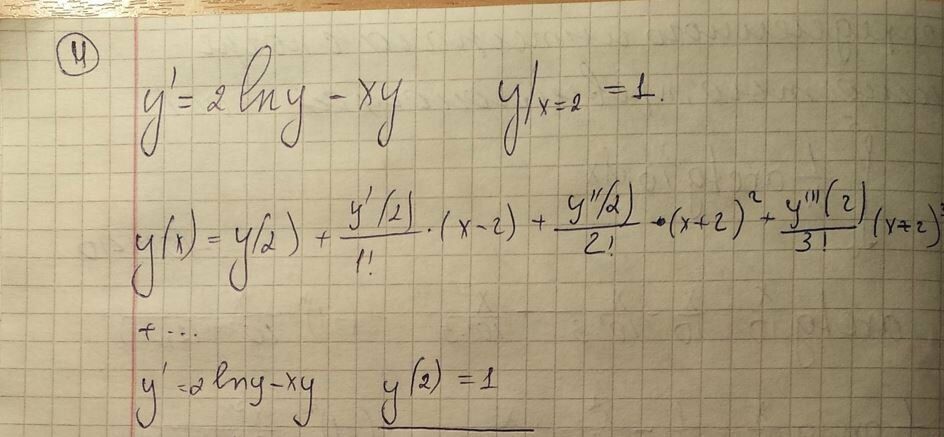 4
y' = 2 ln y - xy y|x=2 = 1.
y(x) = y(2) + y'(2)/1! · (x-2) + y''(2)/2! · (x+2)² + y'''(2)/3! (x+2)³
+ ...
y' = 2 ln y - xy y(2) = 1